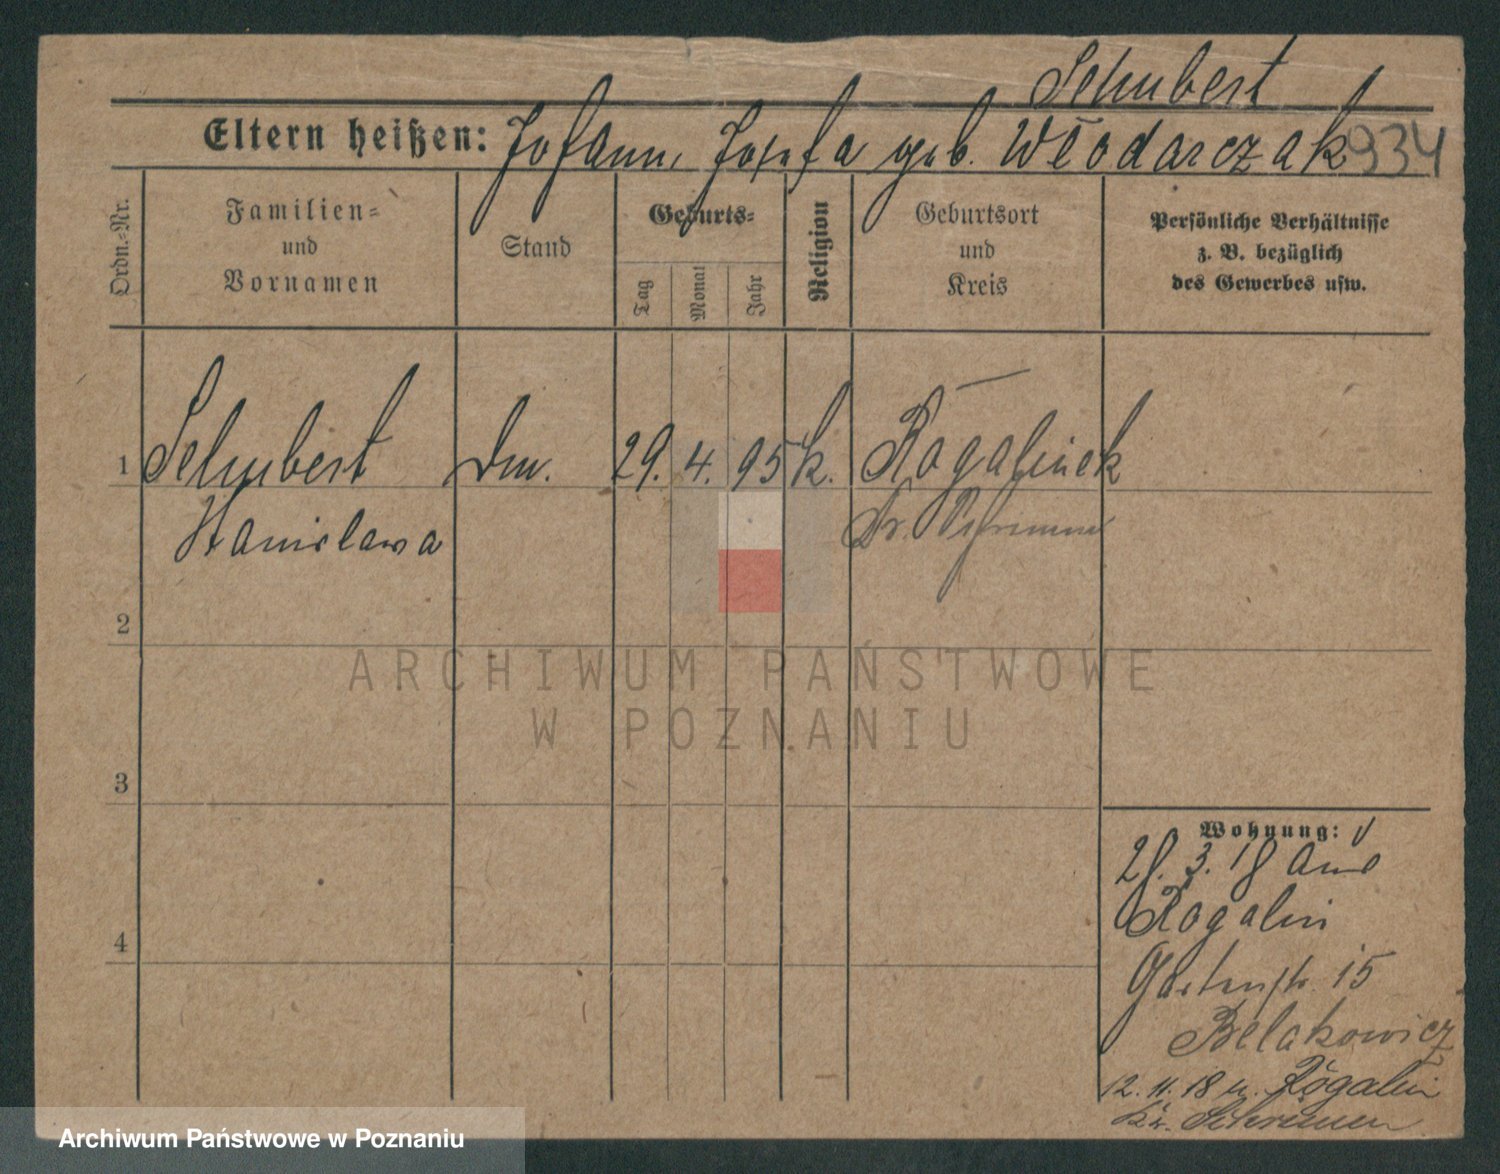 Schubert
Eltern heißen: Johann, Josefa geb. Włodarczak 934
Ordn.-Nr.
Familien-
und
Vornamen
Stand
Geburts-
Tag
Monat
Jahr
Religion
Geburtsort
und
Kreis
Persönliche Verhältnisse
z. B. bezüglich
des Gewerbes usw.
1 Schubert Dm. 29. 4. 95 k. Rogalinek
Stanislawa Kr. Schrimm
2
3
4
ARCHIWUM PAŃSTWOWE
W POZNANIU
Wohnung:
28. 3. 18 aus
Rogalin
Gartenstr. 15
Belakowicz
12. 11. 18 n. Rogalin
Kr. Schrimm
Archiwum Państwowe w Poznaniu